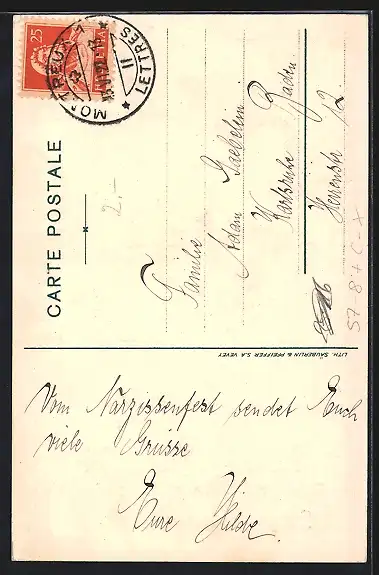 25
HELVETIA
MONTREUX
LETTRES
II
CARTE POSTALE
2.-
Familie
Adam Gaebelein
Karlsruhe Baden
Herrenstr 12
57-8 + C-X
LITH. SÄUBERLIN & PFEIFFER S.A. VEVEY
Vom Narzissenfest sendet Euch
viele Grüsse
Eure Hilde